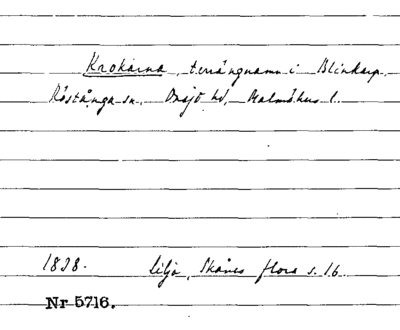 Krokarna, terrängnamn i Blinkarp,
Röstånga sn. Onsjö hd, Malmöhus l.
1838. Lilja, Skånes flora s. 16.
Nr 5716.